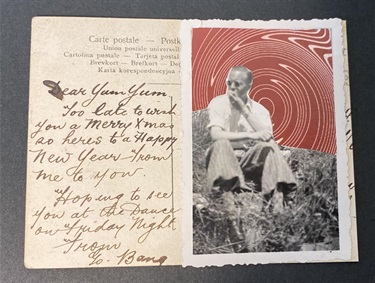 Carte postale — Postk
Union postale universell
Cartolina postale — Tarjeta postal
Brevkort — Brefkort — Do
Karta korespondencyjna
Dear Yum Yum.
Too late to wish
you a Merry Xmas
so heres to a Happy
New Year From
me to you.
Hoping to see
you at the Dance
on Friday Night.
From
Bang